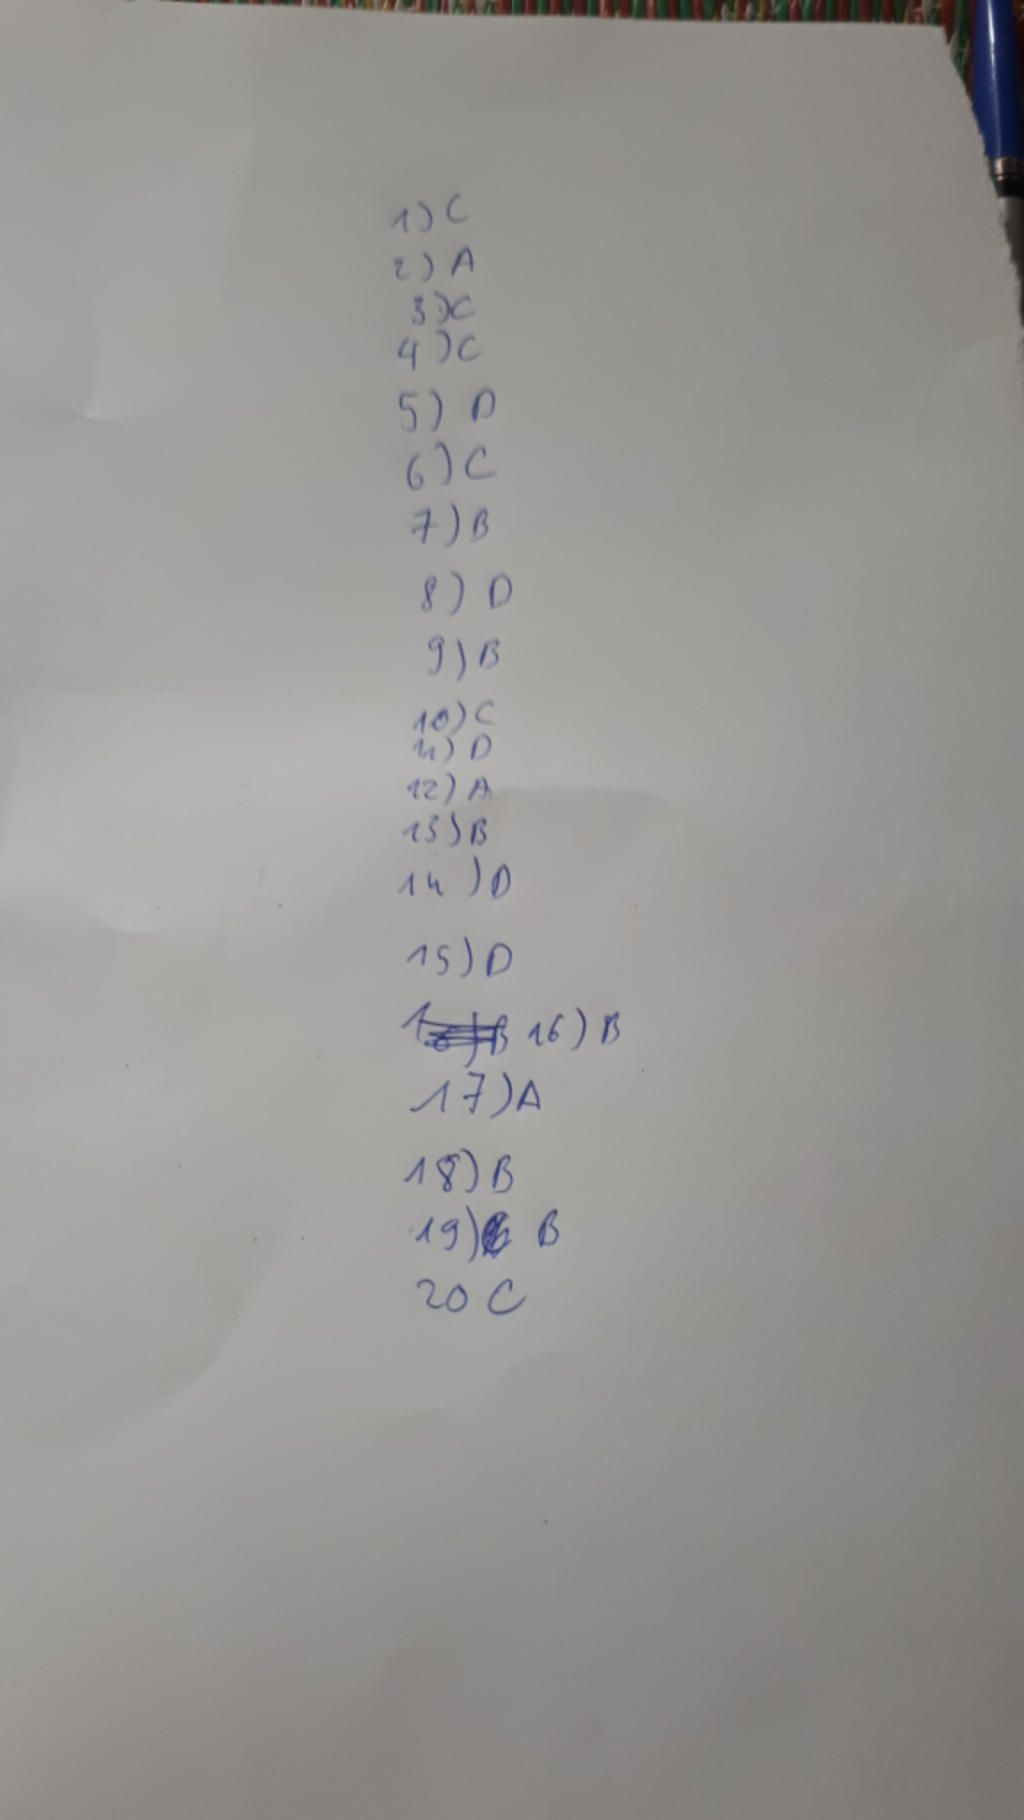 1) C
2) A
3) C
4) C
5) D
6) C
7) B
8) D
9) B
10) C
11) D
12) A
13) B
14) D
15) D
16) B 16) B
17) A
18) B
19) B
20 C